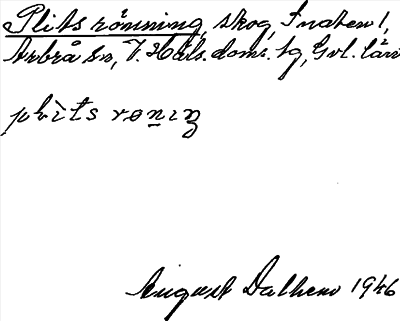 Plits rönning, skog, Snaten 1,
Arbrå sn, V. Häls. doms. tg, Gvl. län
plìts røniŋ
August Dalhem 1946